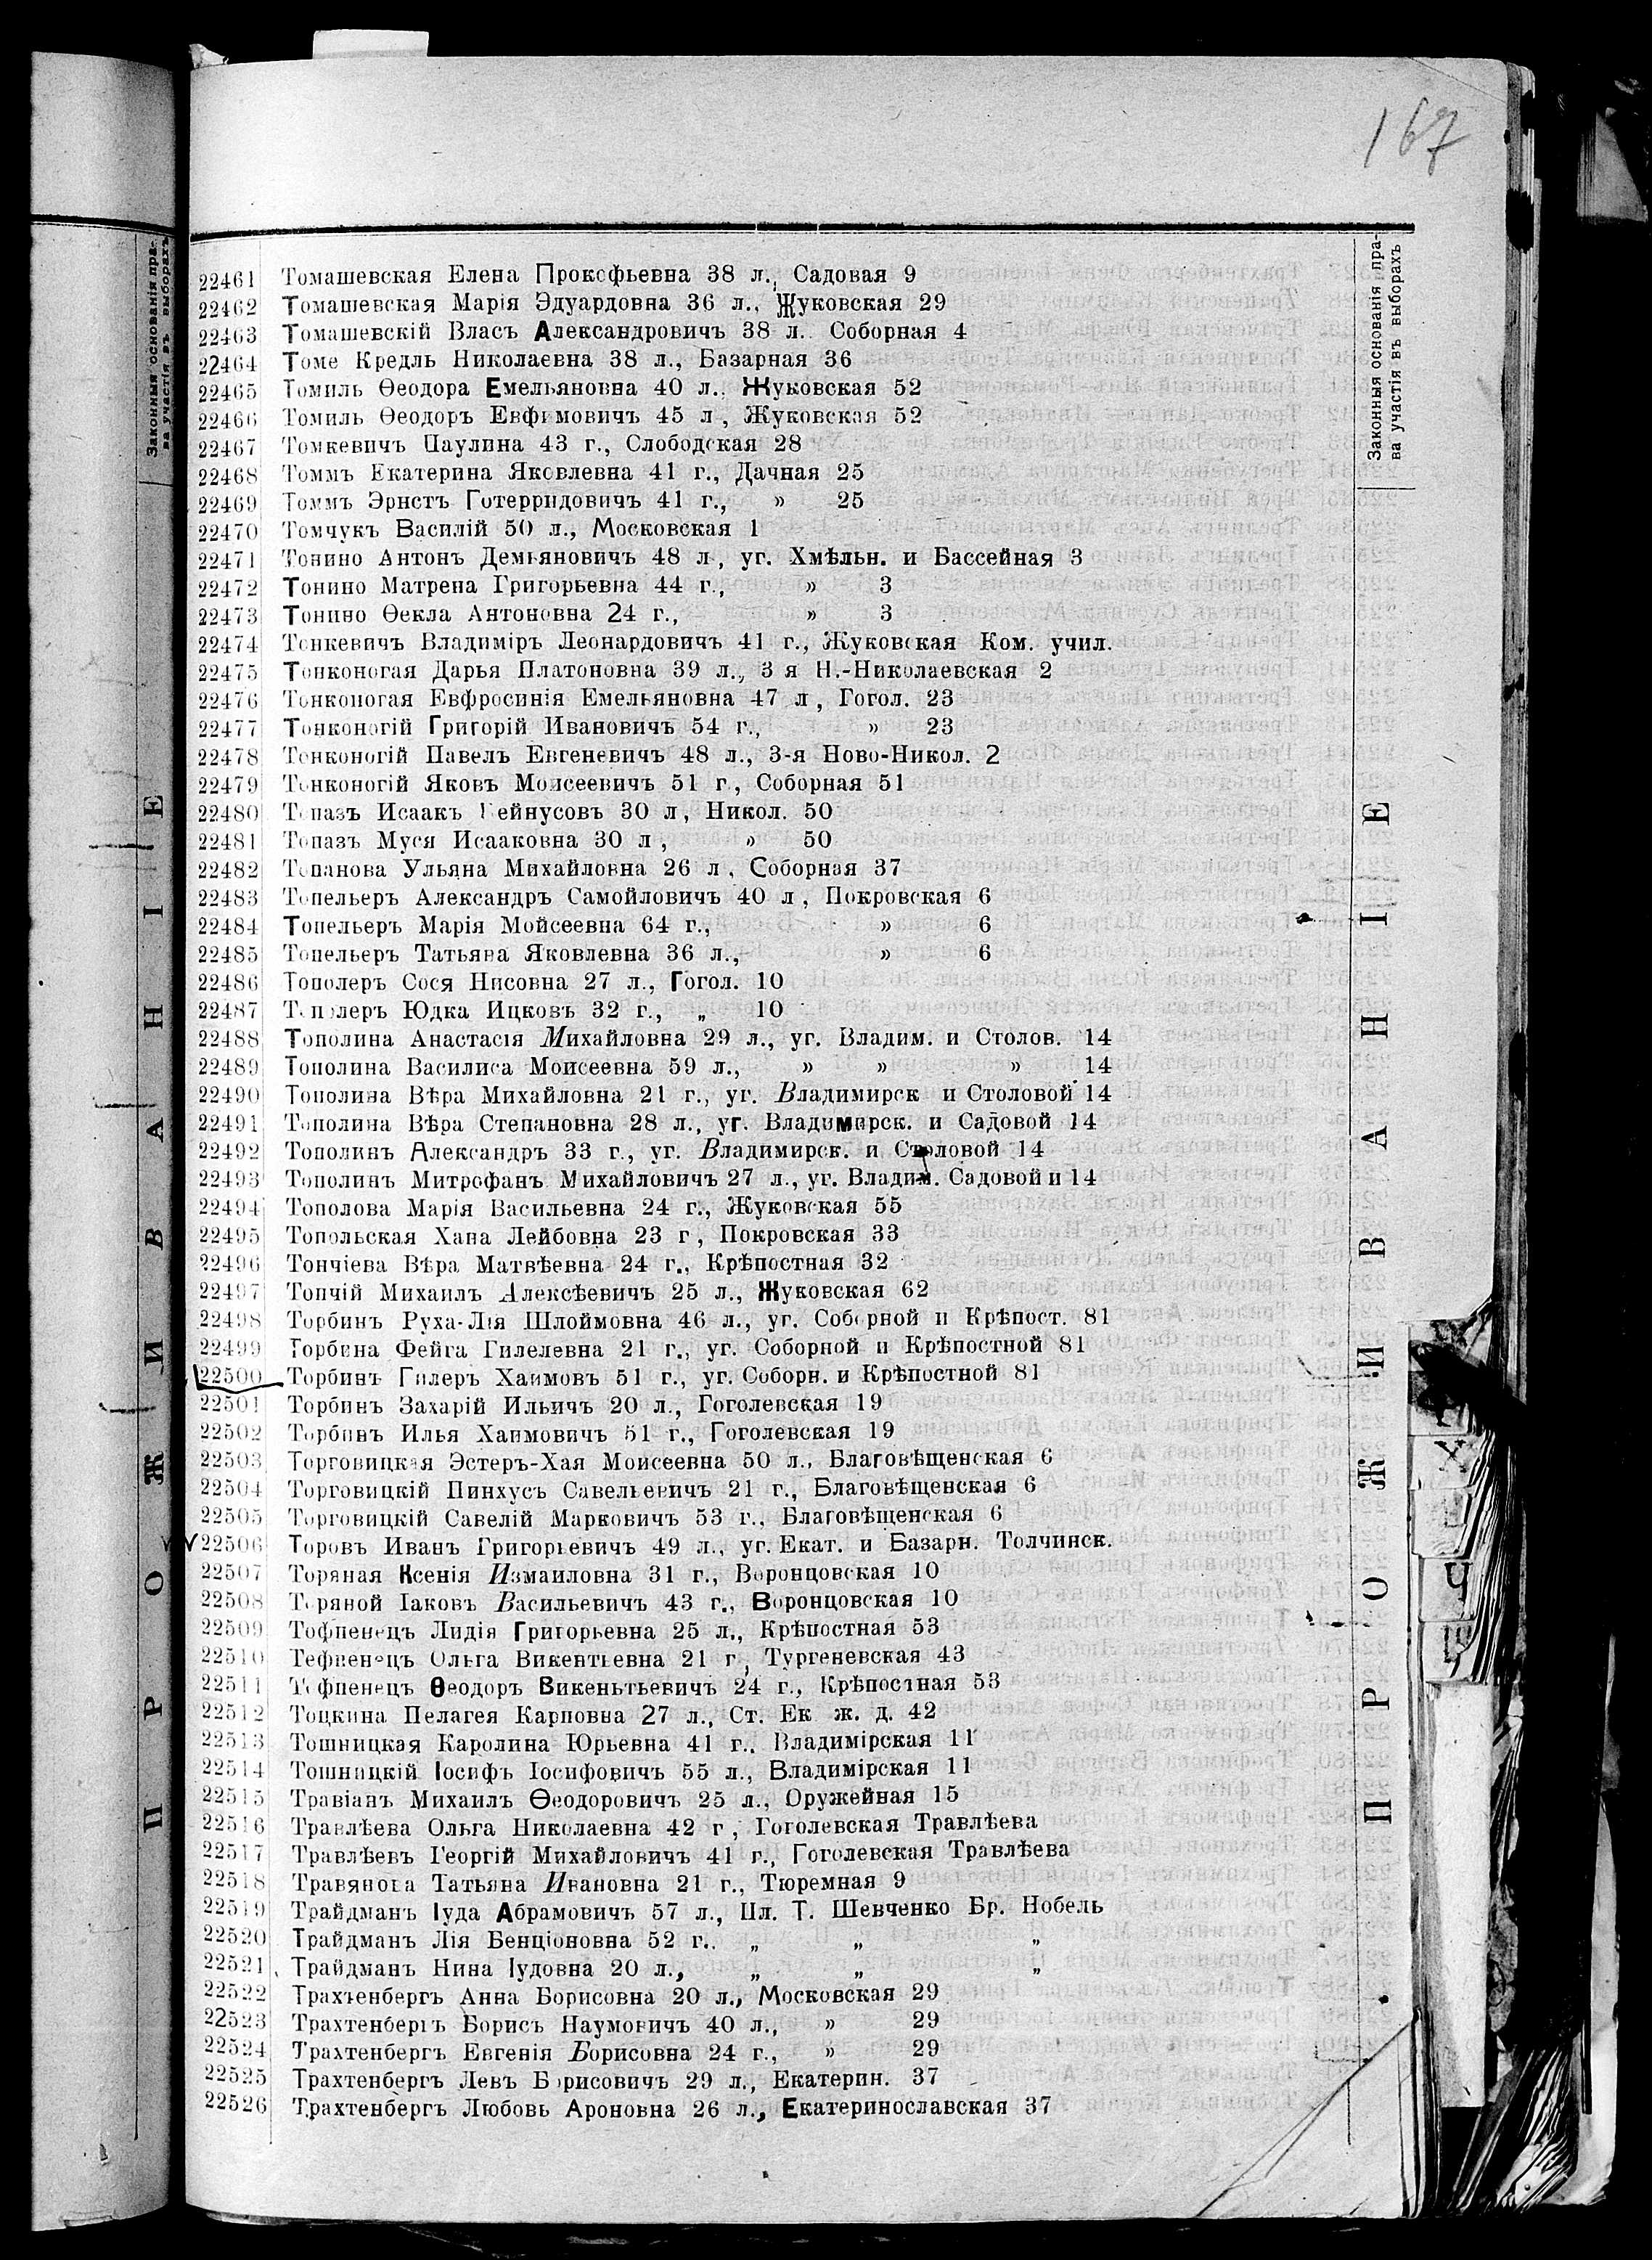 167
Законныя основанія пра-
ва участія въ выборахъ
ПРОЖИВАНІЕ
22461 Томашевская Елена Прокофьевна 38 л., Садовая 9
22462 Томашевская Марія Эдуардовна 36 л., Жуковская 29
22463 Томашевскій Власъ Александровичъ 38 л. Соборная 4
22464 Томе Кредль Николаевна 38 л., Базарная 36
22465 Томиль Ѳеодора Емельяновна 40 л. Жуковская 52
22466 Томиль Ѳеодоръ Евфимовичъ 45 л, Жуковская 52
22467 Томкевичъ Паулина 43 г., Слободская 28
22468 Томмъ Екатерина Яковлевна 41 г., Дачная 25
22469 Томмъ Эрнстъ Готерридовичъ 41 г., » 25
22470 Томчукъ Василій 50 л., Московская 1
22471 Тонино Антонъ Демьяновичъ 48 л, уг. Хмѣльн. и Бассейная 3
22472 Тонино Матрена Григорьевна 44 г., » 3
22473 Тонино Ѳекла Антоновна 24 г., » 3
22474 Тонкевичъ Владиміръ Леонардовичъ 41 г., Жуковская Ком. учил.
22475 Тонконогая Дарья Платоновна 39 л., 3 я Н.-Николаевская 2
22476 Тонконогая Евфросинія Емельяновна 47 л, Гогол. 23
22477 Тонконогій Григорій Ивановичъ 54 г., » 23
22478 Тонконогій Павелъ Евгеневичъ 48 л., 3-я Ново-Никол. 2
22479 Тонконогій Яковъ Моисеевичъ 51 г, Соборная 51
22480 Топазъ Исаакъ Бейнусовъ 30 л, Никол. 50
22481 Топазъ Муся Исааковна 30 л, » 50
22482 Топанова Ульяна Михайловна 26 л, Соборная 37
22483 Топельеръ Александръ Самойловичъ 40 л, Покровская 6
22484 Топельеръ Марія Мойсеевна 64 г., » 6
22485 Топельеръ Татьяна Яковлевна 36 л., » 6
22486 Тополеръ Сося Нисовна 27 л., Гогол. 10
22487 Тополеръ Юдка Ицковъ 32 г., „ 10
22488 Тополина Анастасія Михайловна 29 л., уг. Владим. и Столов. 14
22489 Тополина Василиса Моисеевна 59 л., » » » 14
22490 Тополина Вѣра Михайловна 21 г., уг. Владимирск и Столовой 14
22491 Тополина Вѣра Степановна 28 л., уг. Владимирск. и Садовой 14
22492 Тополинъ Александръ 33 г., уг. Владимирск. и Столовой 14
22493 Тополинъ Митрофанъ Михайловичъ 27 л., уг. Владим. Садовой и 14
22494 Тополова Марія Васильевна 24 г., Жуковская 55
22495 Топольская Хана Лейбовна 23 г, Покровская 33
22496 Тончіева Вѣра Матвѣевна 24 г., Крѣпостная 32
22497 Топчій Михаилъ Алексѣевичъ 25 л., Жуковская 62
22498 Торбинъ Руха-Лія Шлоймовна 46 л., уг. Соборной и Крѣпост. 81
22499 Торбина Фейга Гилелевна 21 г., уг. Соборной и Крѣпостной 81
22500 Торбинъ Гилеръ Хаимовъ 51 г., уг. Соборн. и Крѣпостной 81
22501 Торбинъ Захарій Ильичъ 20 л., Гоголевская 19
22502 Торбинъ Илья Хаимовичъ 51 г., Гоголевская 19
22503 Торговицкая Эстеръ-Хая Моисеевна 50 л., Благовѣщенская 6
22504 Торговицкій Пинхусъ Савельевичъ 21 г., Благовѣщенская 6
22505 Торговицкій Савелій Марковичъ 53 г., Благовѣщенская 6
22506 Торовъ Иванъ Григорьевичъ 49 л., уг. Екат. и Базарн. Толчинск.
22507 Торяная Ксенія Измаиловна 31 г., Воронцовская 10
22508 Торяной Іаковъ Васильевичъ 43 г., Воронцовская 10
22509 Тофпенецъ Лидія Григорьевна 25 л., Крѣпостная 53
22510 Тефпенецъ Ольга Викентьевна 21 г, Тургеневская 43
22511 Тофпенецъ Ѳеодоръ Викеньтьевичъ 24 г., Крѣпостная 53
22512 Тоцкина Пелагея Карповна 27 л., Ст. Ек ж. д. 42
22513 Тошницкая Каролина Юрьевна 41 г., Владимірская 11
22514 Тошницкій Іосифъ Іосифовичъ 55 л., Владимірская 11
22515 Травіанъ Михаилъ Ѳеодоровичъ 25 л., Оружейная 15
22516 Травлѣева Ольга Николаевна 42 г, Гоголевская Травлѣева
22517 Травлѣевъ Георгій Михайловичъ 41 г., Гоголевская Травлѣева
22518 Травянова Татьяна Ивановна 21 г., Тюремная 9
22519 Трайдманъ Іуда Абрамовичъ 57 л., Пл. Т. Шевченко Бр. Нобель
22520 Трайдманъ Лія Бенціоновна 52 г. „ „ „
22521 Трайдманъ Нина Іудовна 20 л., „ „ „
22522 Трахтенбергъ Анна Борисовна 20 л., Московская 29
22523 Трахтенбергъ Борисъ Наумовичъ 40 л., » 29
22524 Трахтенбергъ Евгенія Борисовна 24 г., » 29
22525 Трахтенбергъ Левъ Борисовичъ 29 л., Екатерин. 37
22526 Трахтенбергъ Любовь Ароновна 26 л., Екатеринославская 37
Законныя основанія пра-
ва участія въ выборахъ
ПРОЖИВАНІЕ
Х
Ч